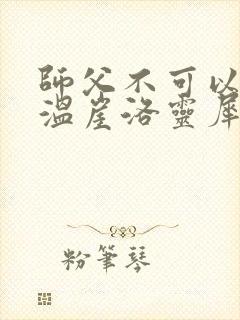 師父不可以
溫崖洛靈犀
粉筆琴